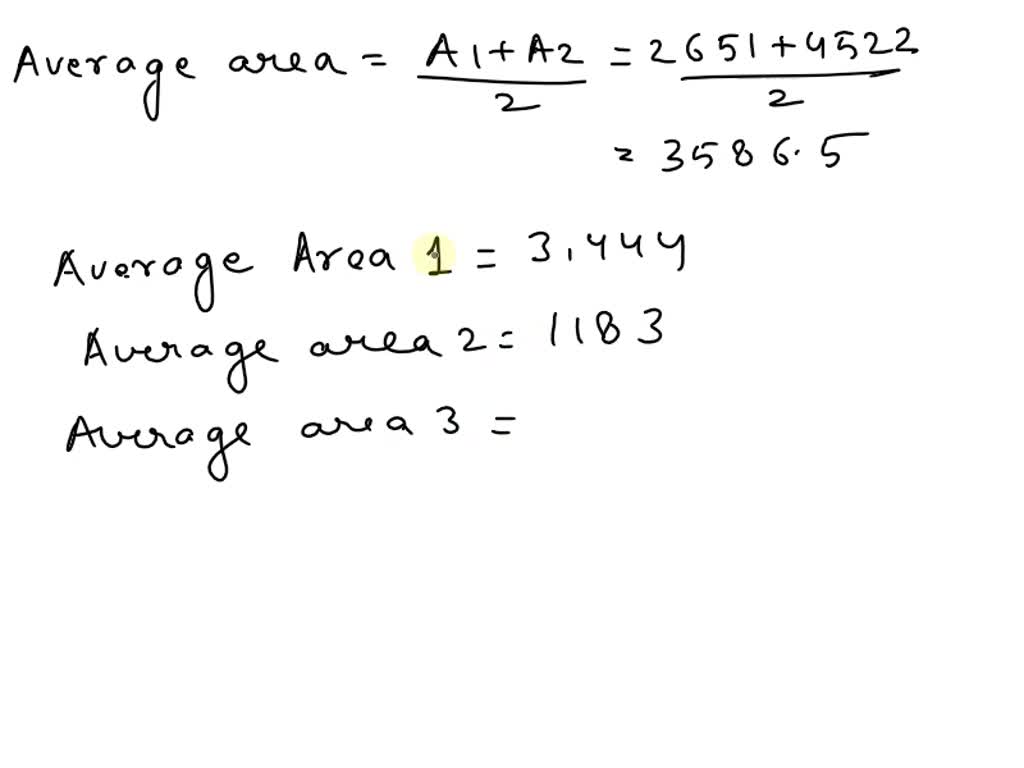 Average area = A1+A2 / 2 = 2651+4522 / 2
= 3586.5
Average Area 1 = 3.444
Average area 2 = 1183
Average area 3 =